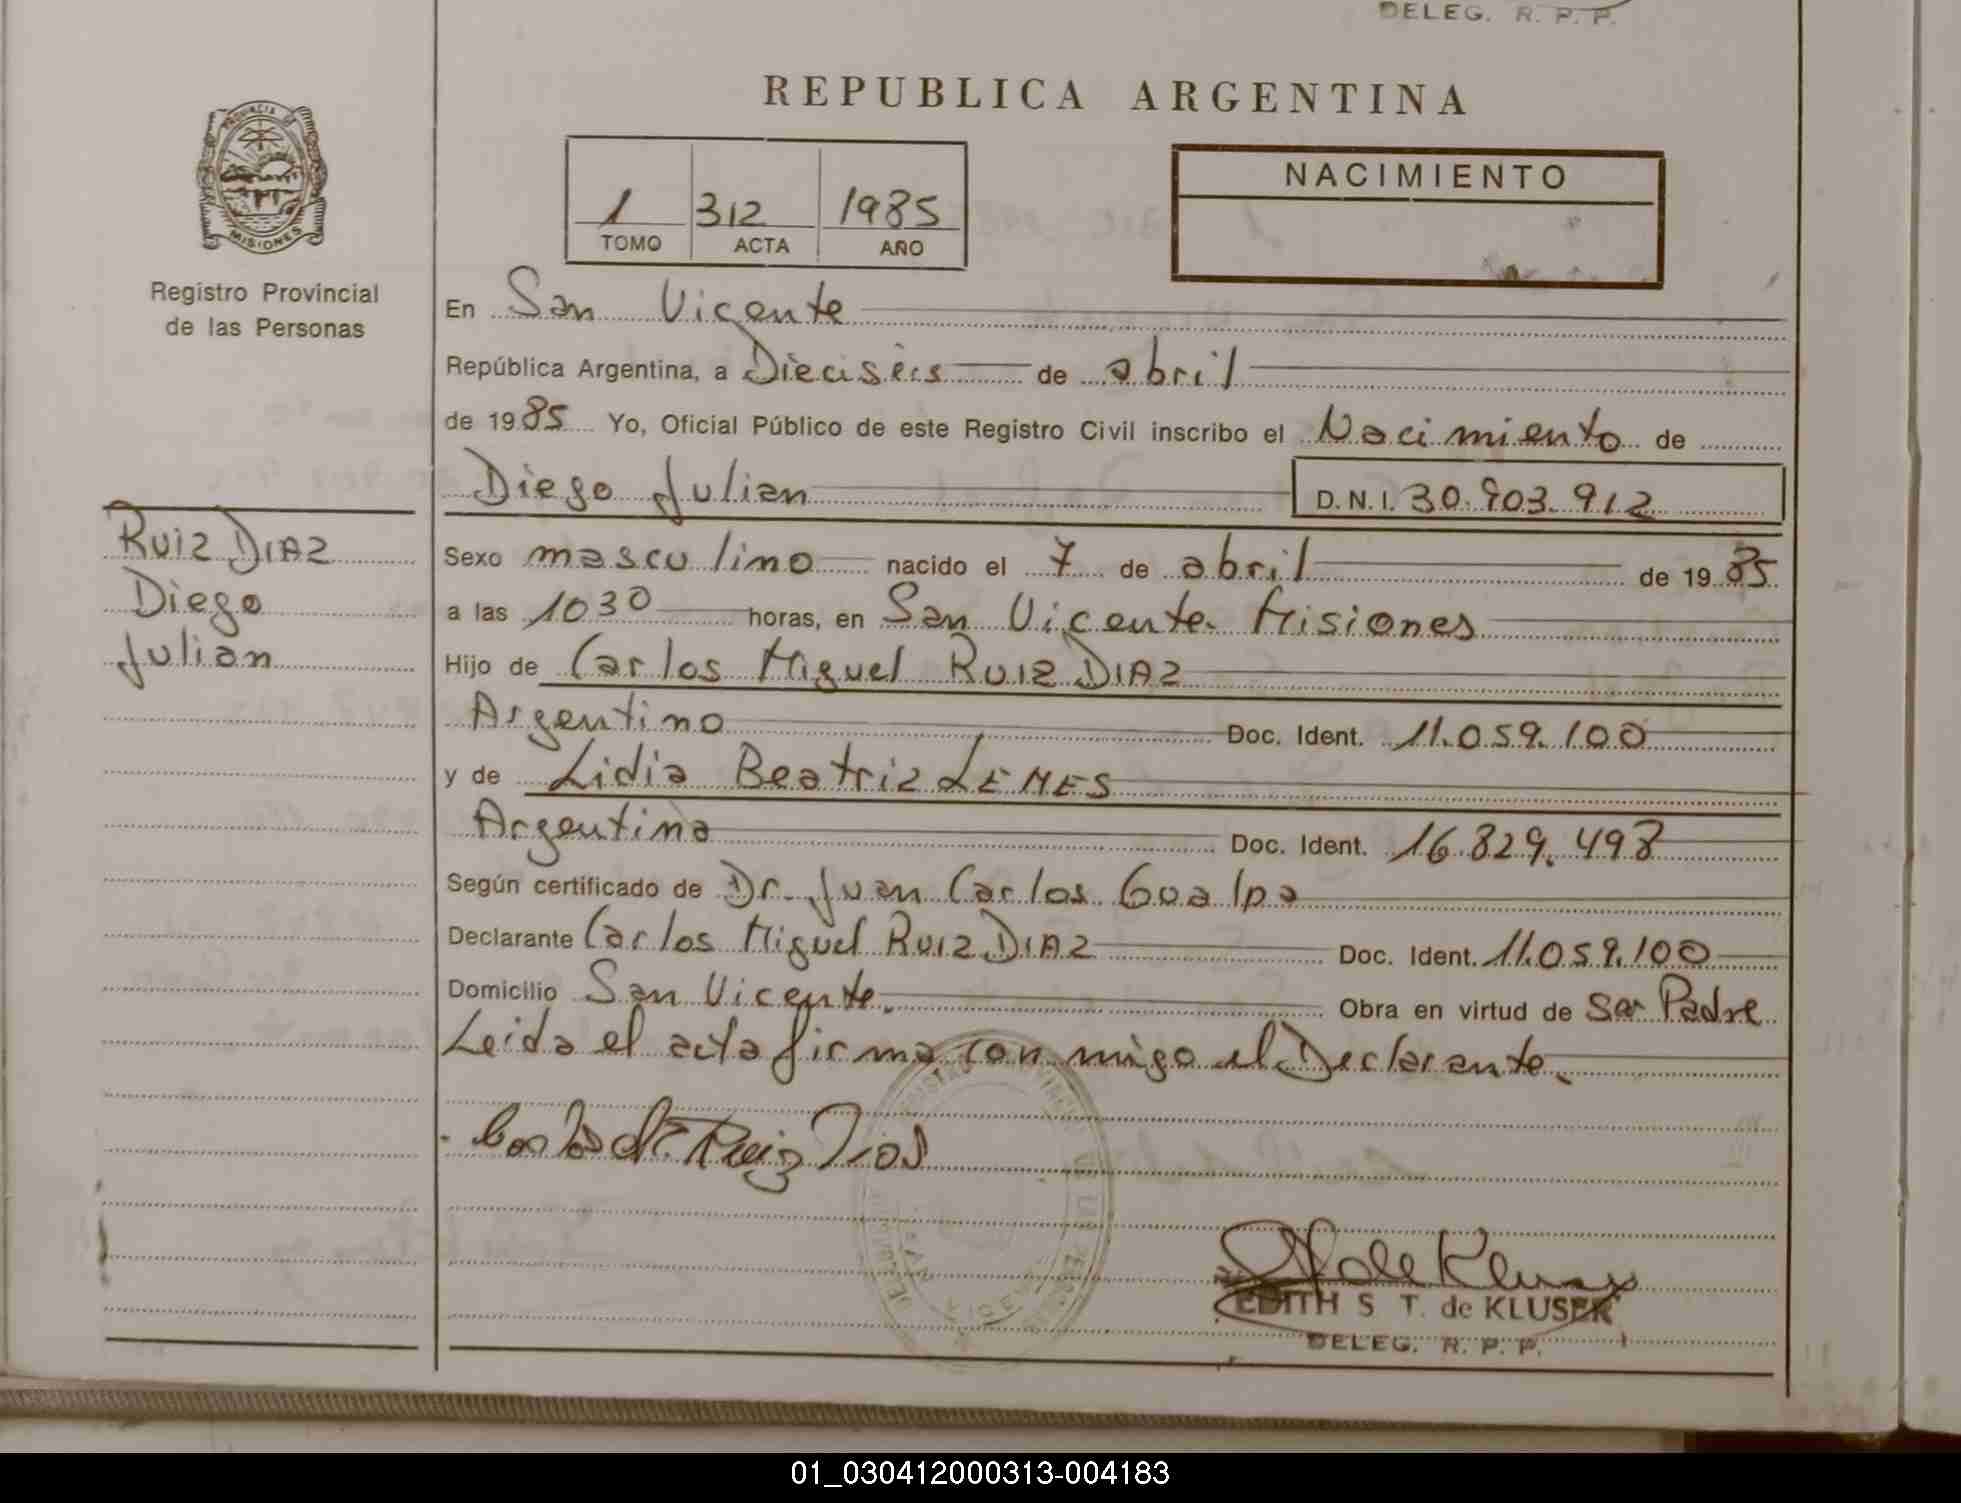 DELEG. R. P. P.
REPUBLICA ARGENTINA
PROVINCIA DE
MISIONES
Registro Provincial
de las Personas
1 312 1985
TOMO ACTA AÑO
NACIMIENTO
En San Vicente
República Argentina, a Dieciséis de abril
de 1985 Yo, Oficial Público de este Registro Civil inscribo el Nacimiento de
Diego Julian D.N.I. 30.903.912
RUIZ DIAZ
Diego
Julian
Sexo masculino nacido el 7 de abril de 1985
a las 1030 horas, en San Vicente. Misiones
Hijo de Carlos Miguel RUIZ DIAZ
Argentino Doc. Ident. 11.059.100
y de Lidia Beatriz LEMES
Argentina Doc. Ident. 16.829.498
Según certificado de Dr. Juan Carlos Goalpa
Declarante Carlos Miguel RUIZ DIAZ Doc. Ident. 11.059.100
Domicilio San Vicente. Obra en virtud de Ser Padre
Leida el acta firma con migo el Declarante.
Ruiz Dias
de Kluser
EDITH S T. de KLUSER
DELEG. R. P. P.
01_030412000313-004183